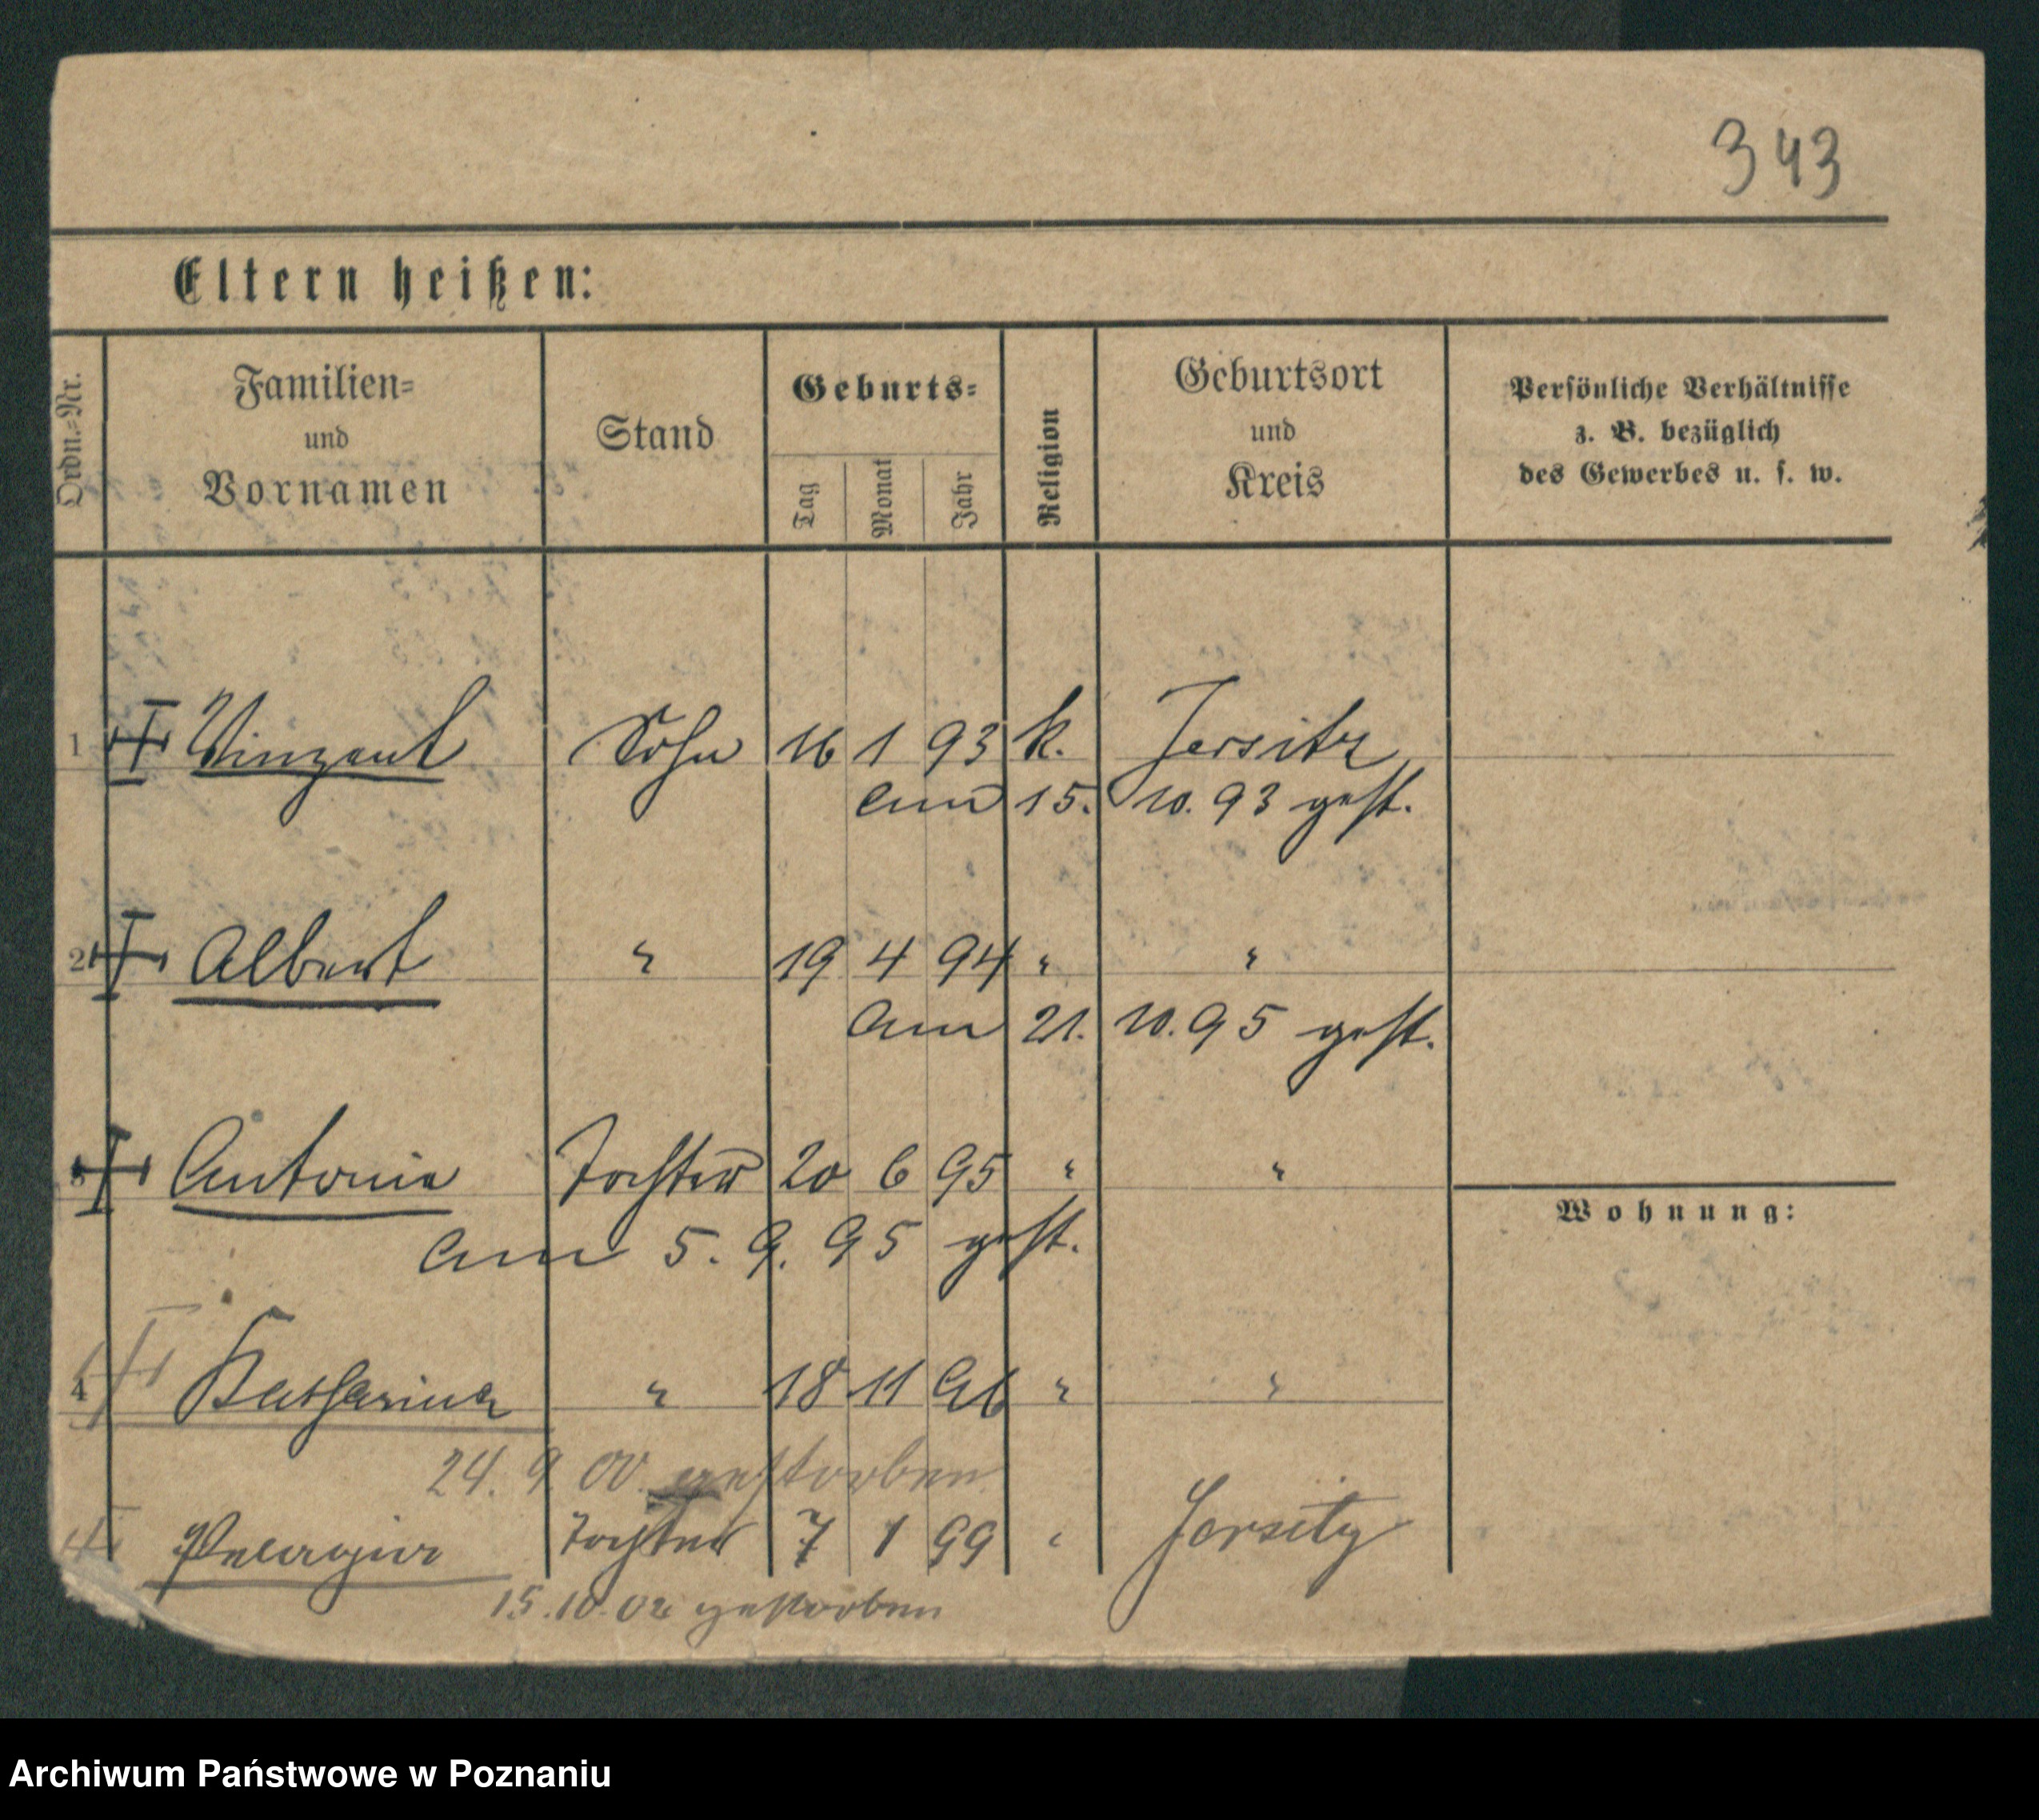 343
Eltern heißen:
Ordn.-Nr.
Familien-
und
Vornamen
Stand
Geburts-
Tag
Monat
Jahr
Religion
Geburtsort
und
Kreis
Persönliche Verhältnisse
z. B. bezüglich
des Gewerbes u. s. w.
1 Vinzent Sohn 16 1 93 k. Jersitz
am 15. 10. 93 gest.
2 Albert " 19 4 94 " "
am 21. 10. 95 gest.
3 Antonie Tochter 20 6 95 " "
am 5. 9. 95 gest.
Wohnung:
4 Katharina " 18 11 96 " "
24. 9. 00. gestorben
Pelagia Tochter 7 1 99 " Jersitz
15. 10. 02 gestorben
Archiwum Państwowe w Poznaniu